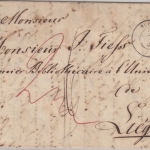 Monsieur
Monsieur J. Fiess
Bibliothécaire à l'Univ
de
Liég